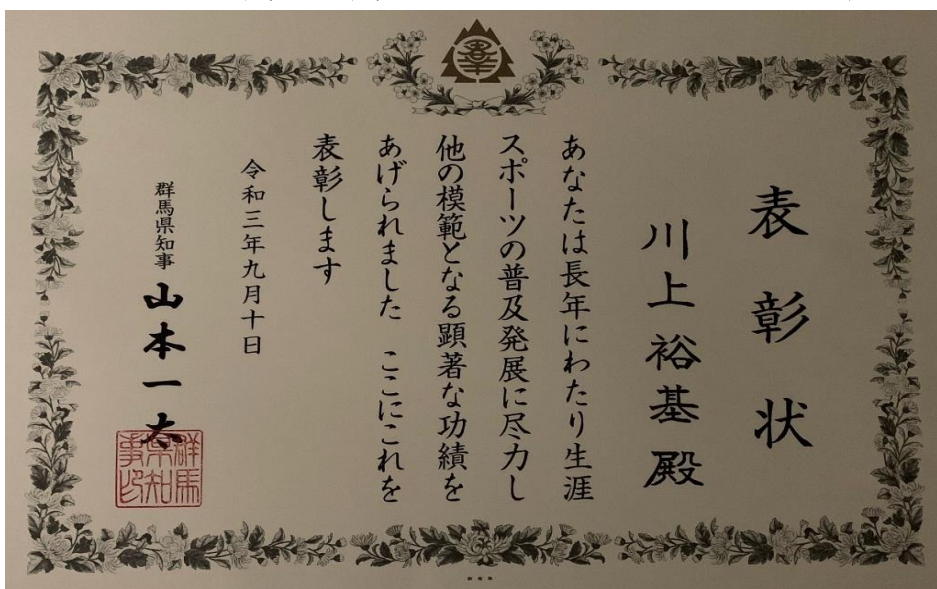 表彰状
川上裕基殿
あなたは長年にわたり生涯
スポーツの普及発展に尽力し
他の模範となる顕著な功績を
あげられました ここにこれを
表彰します
令和三年九月十日
群馬県知事 山本一太
群馬
県知
事印